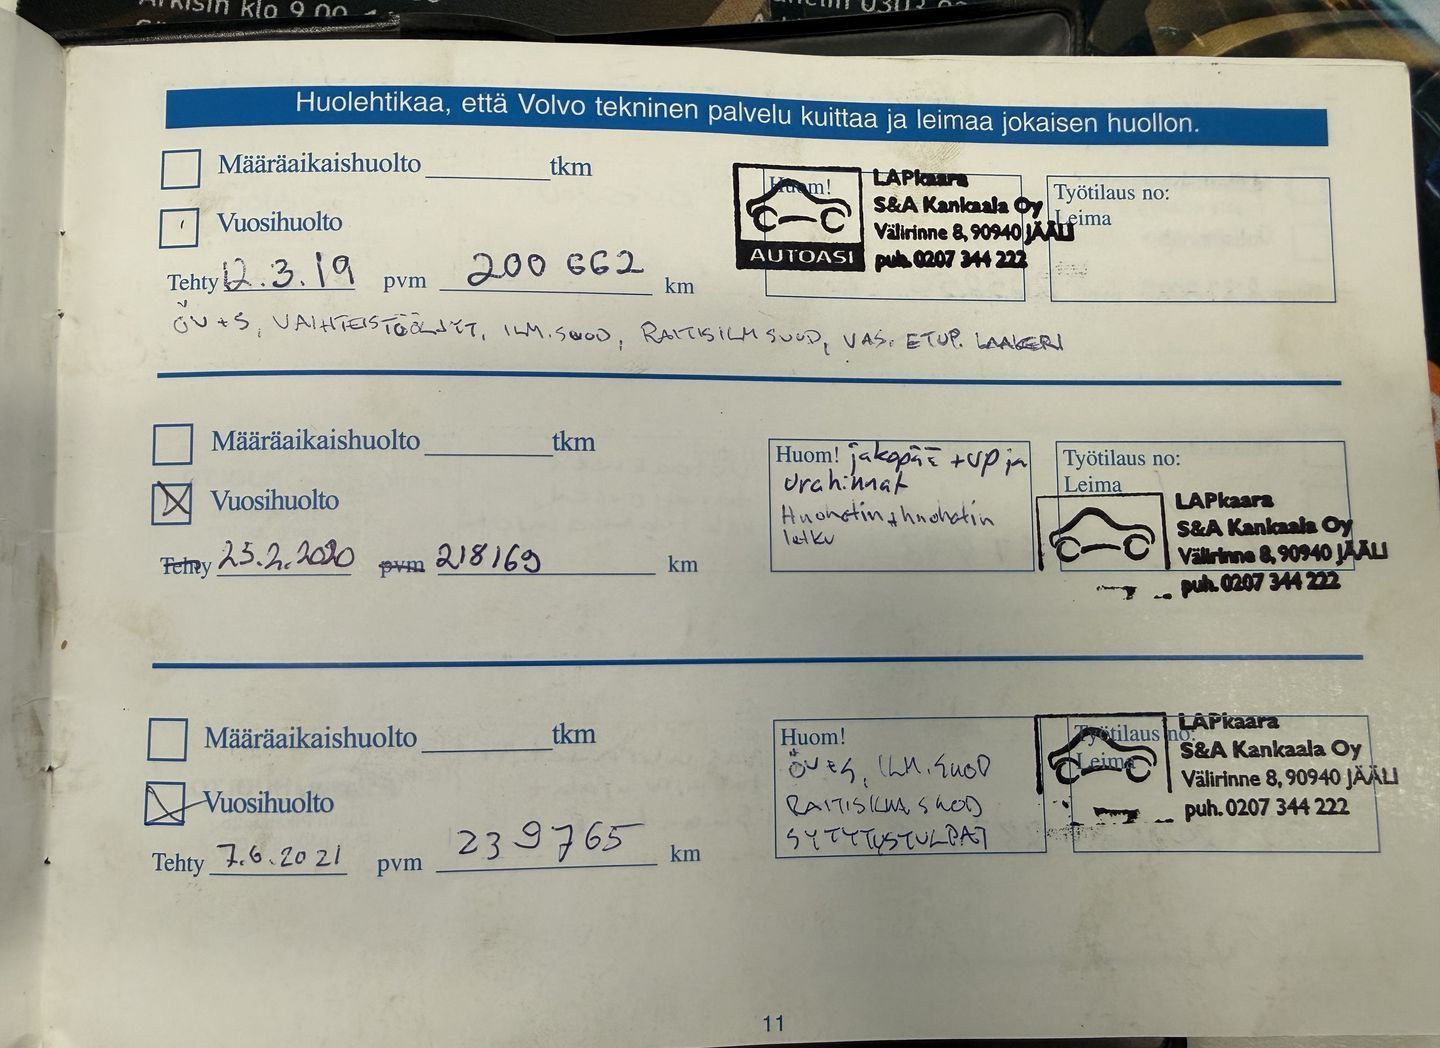 Huolehtikaa, että Volvo tekninen palvelu kuittaa ja leimaa jokaisen huollon.
Määräaikaishuolto ________ tkm
Vuosihuolto
Tehty 12.3.19 pvm 200 662 km
Huom!
AUTOASI
LAPkaara
S&A Kankaala Oy
Välirinne 8, 90940 JÄÄLI
puh. 0207 344 222
Työtilaus no:
Leima
ÖV+S, VAIHTEISTÖÖLJYT, ILM.SUOD, RAITISILMSUOD, VAS. ETUP. LAAKERI
Määräaikaishuolto ________ tkm
Vuosihuolto
Tehty 25.2.2020 pvm 218169 km
Huom! jakopää + vp ja
urahihnat
Huohotin + huohotin
letku
Työtilaus no:
Leima
LAPkaara
S&A Kankaala Oy
Välirinne 8, 90940 JÄÄLI
puh. 0207 344 222
Määräaikaishuolto ________ tkm
Vuosihuolto
Tehty 7.6.2021 pvm 239765 km
Huom!
ÖV+S, ILM.SUOD
RAITISILM.SUOD
SYTYTYSTULPAT
Työtilaus no:
Leima
LAPkaara
S&A Kankaala Oy
Välirinne 8, 90940 JÄÄLI
puh. 0207 344 222
11